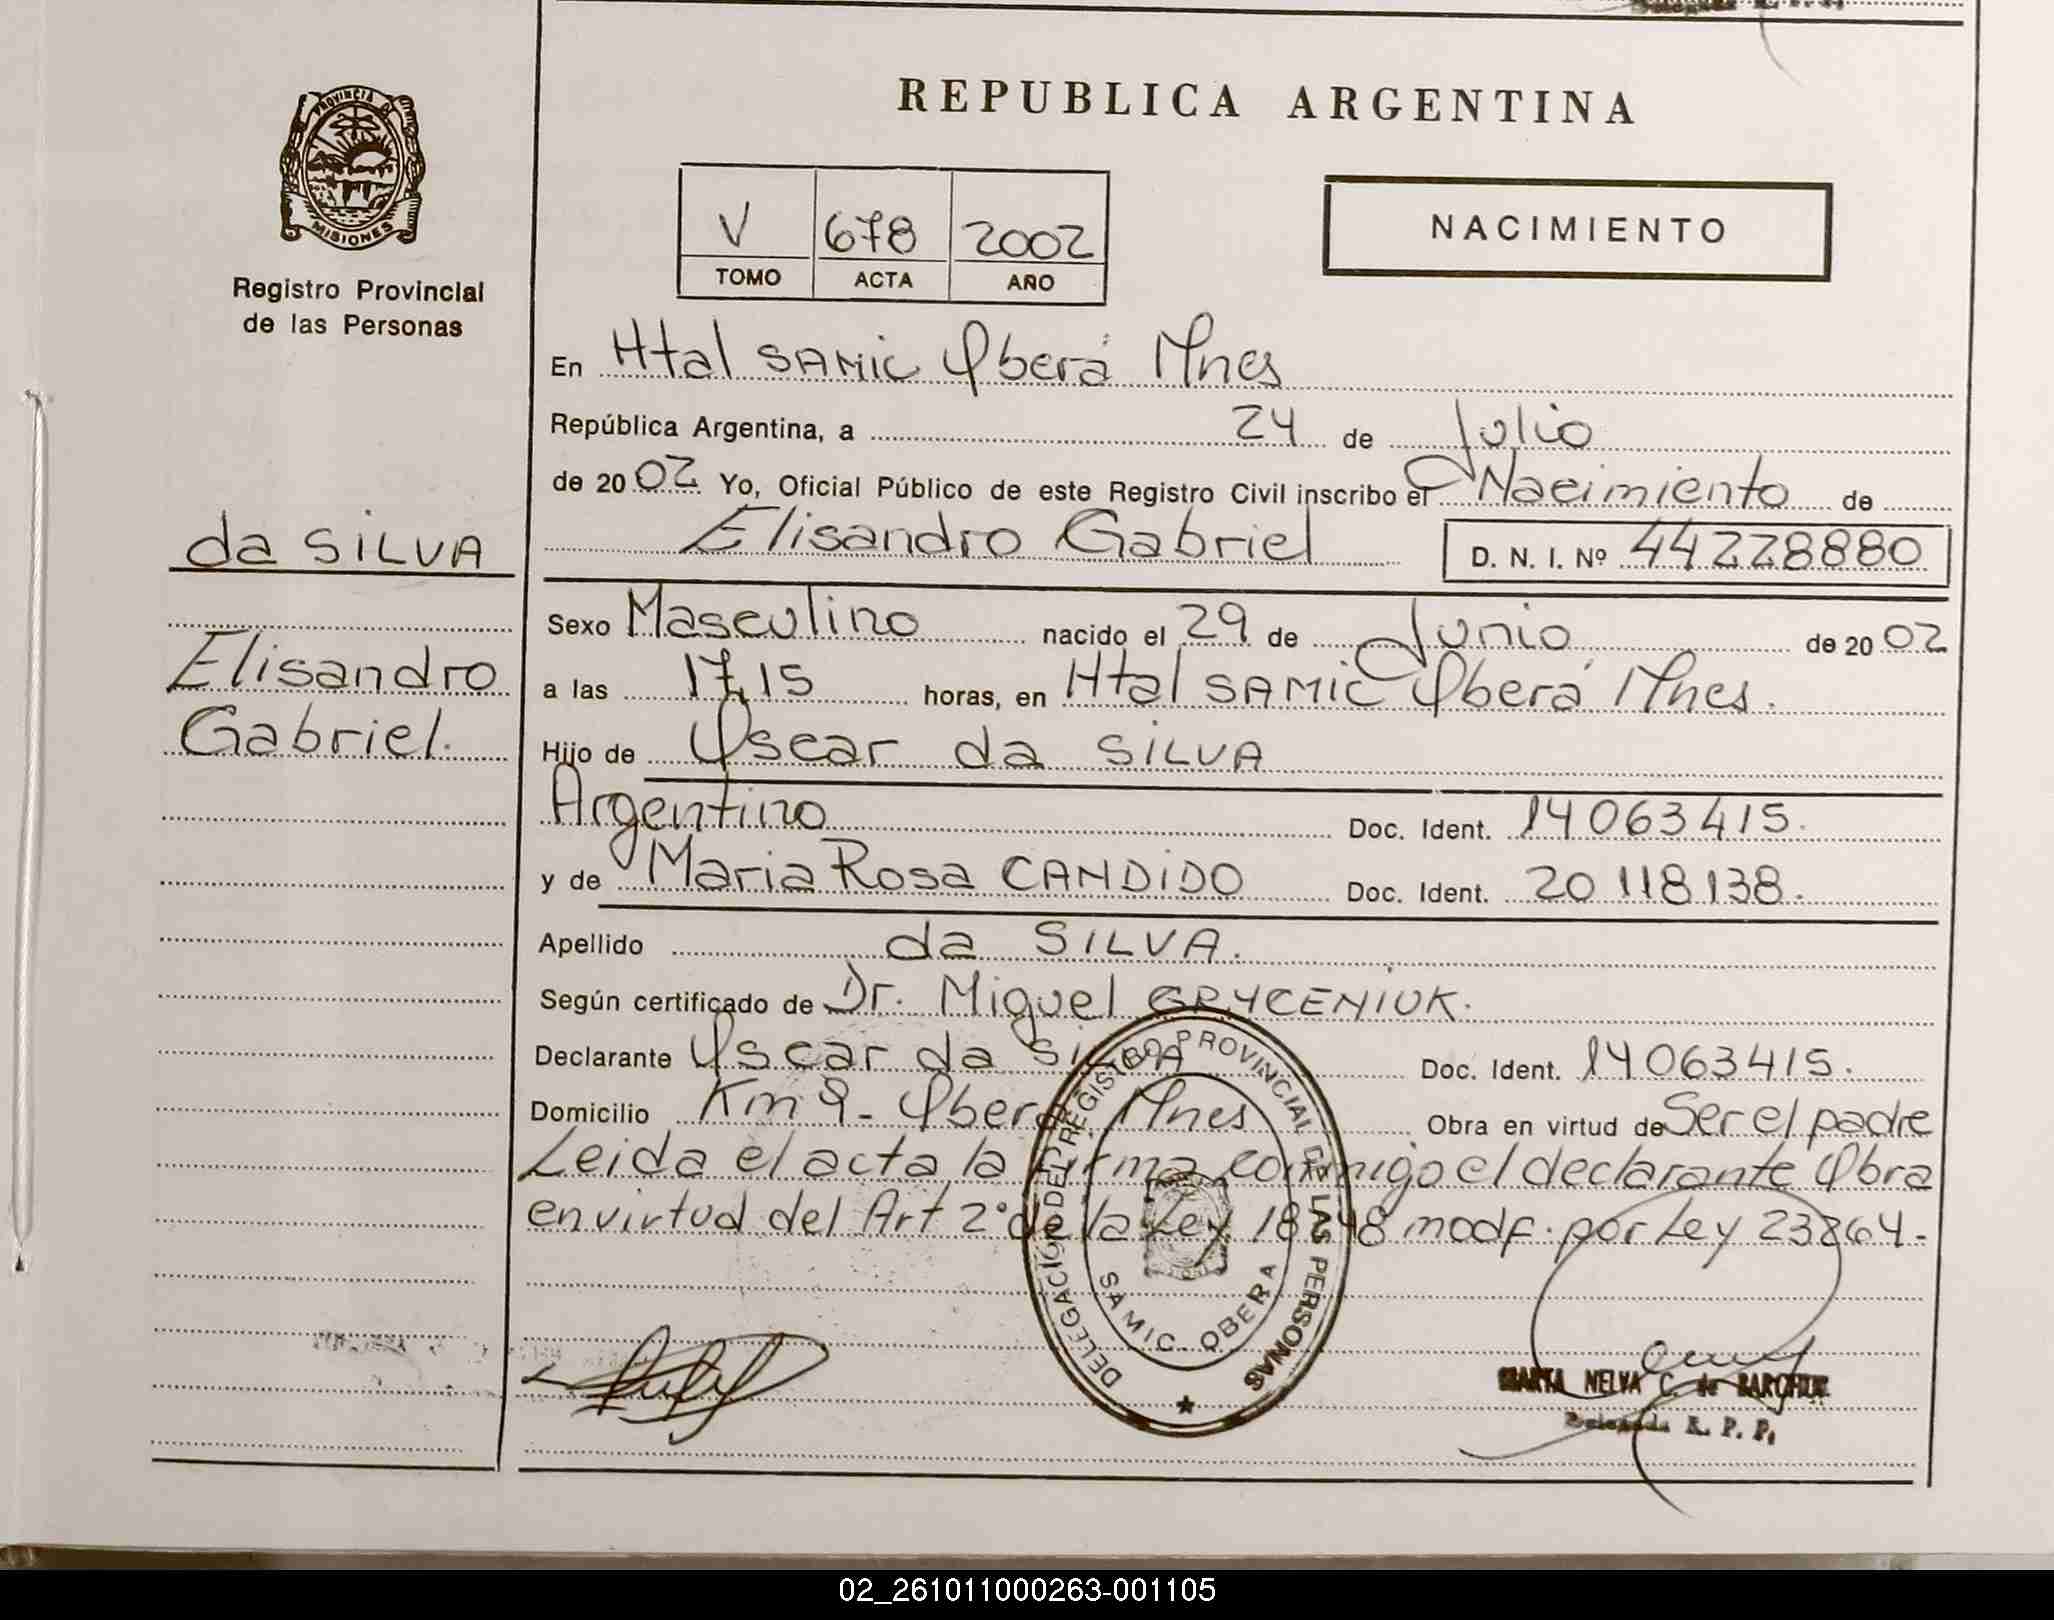 REPUBLICA ARGENTINA
PROVINCIA DE
MISIONES
Registro Provincial
de las Personas
V 678 2002
TOMO ACTA AÑO
NACIMIENTO
En Htal SAMIC Oberá Mnes
República Argentina, a 24 de Julio
de 2002 Yo, Oficial Público de este Registro Civil inscribo el Nacimiento de
Elisandro Gabriel D. N. I. Nº 44228880
da SILVA
Elisandro
Gabriel.
Sexo Masculino nacido el 29 de Junio de 2002
a las 17,15 horas, en Htal SAMIC Oberá Mnes.
Hijo de Oscar da SILVA
Argentino Doc. Ident. 14063415.
y de Maria Rosa CANDIDO Doc. Ident. 20118138.
Apellido da SILVA.
Según certificado de Dr. Miguel GRYCENIUK.
Declarante Oscar da SILVA Doc. Ident. 14063415.
Domicilio Km 9- Oberá Mnes Obra en virtud de Ser el padre
Leida el acta la firma conmigo el declarante Obra
en virtud del Art 2° de la Ley 18248 modf. por Ley 23264.-
DELEGACIÓN DEL REGISTRO PROVINCIAL DE LAS PERSONAS
SAMIC. OBERA
MARTA NELVA C. de
Delegada R. P. P.
02_261011000263-001105